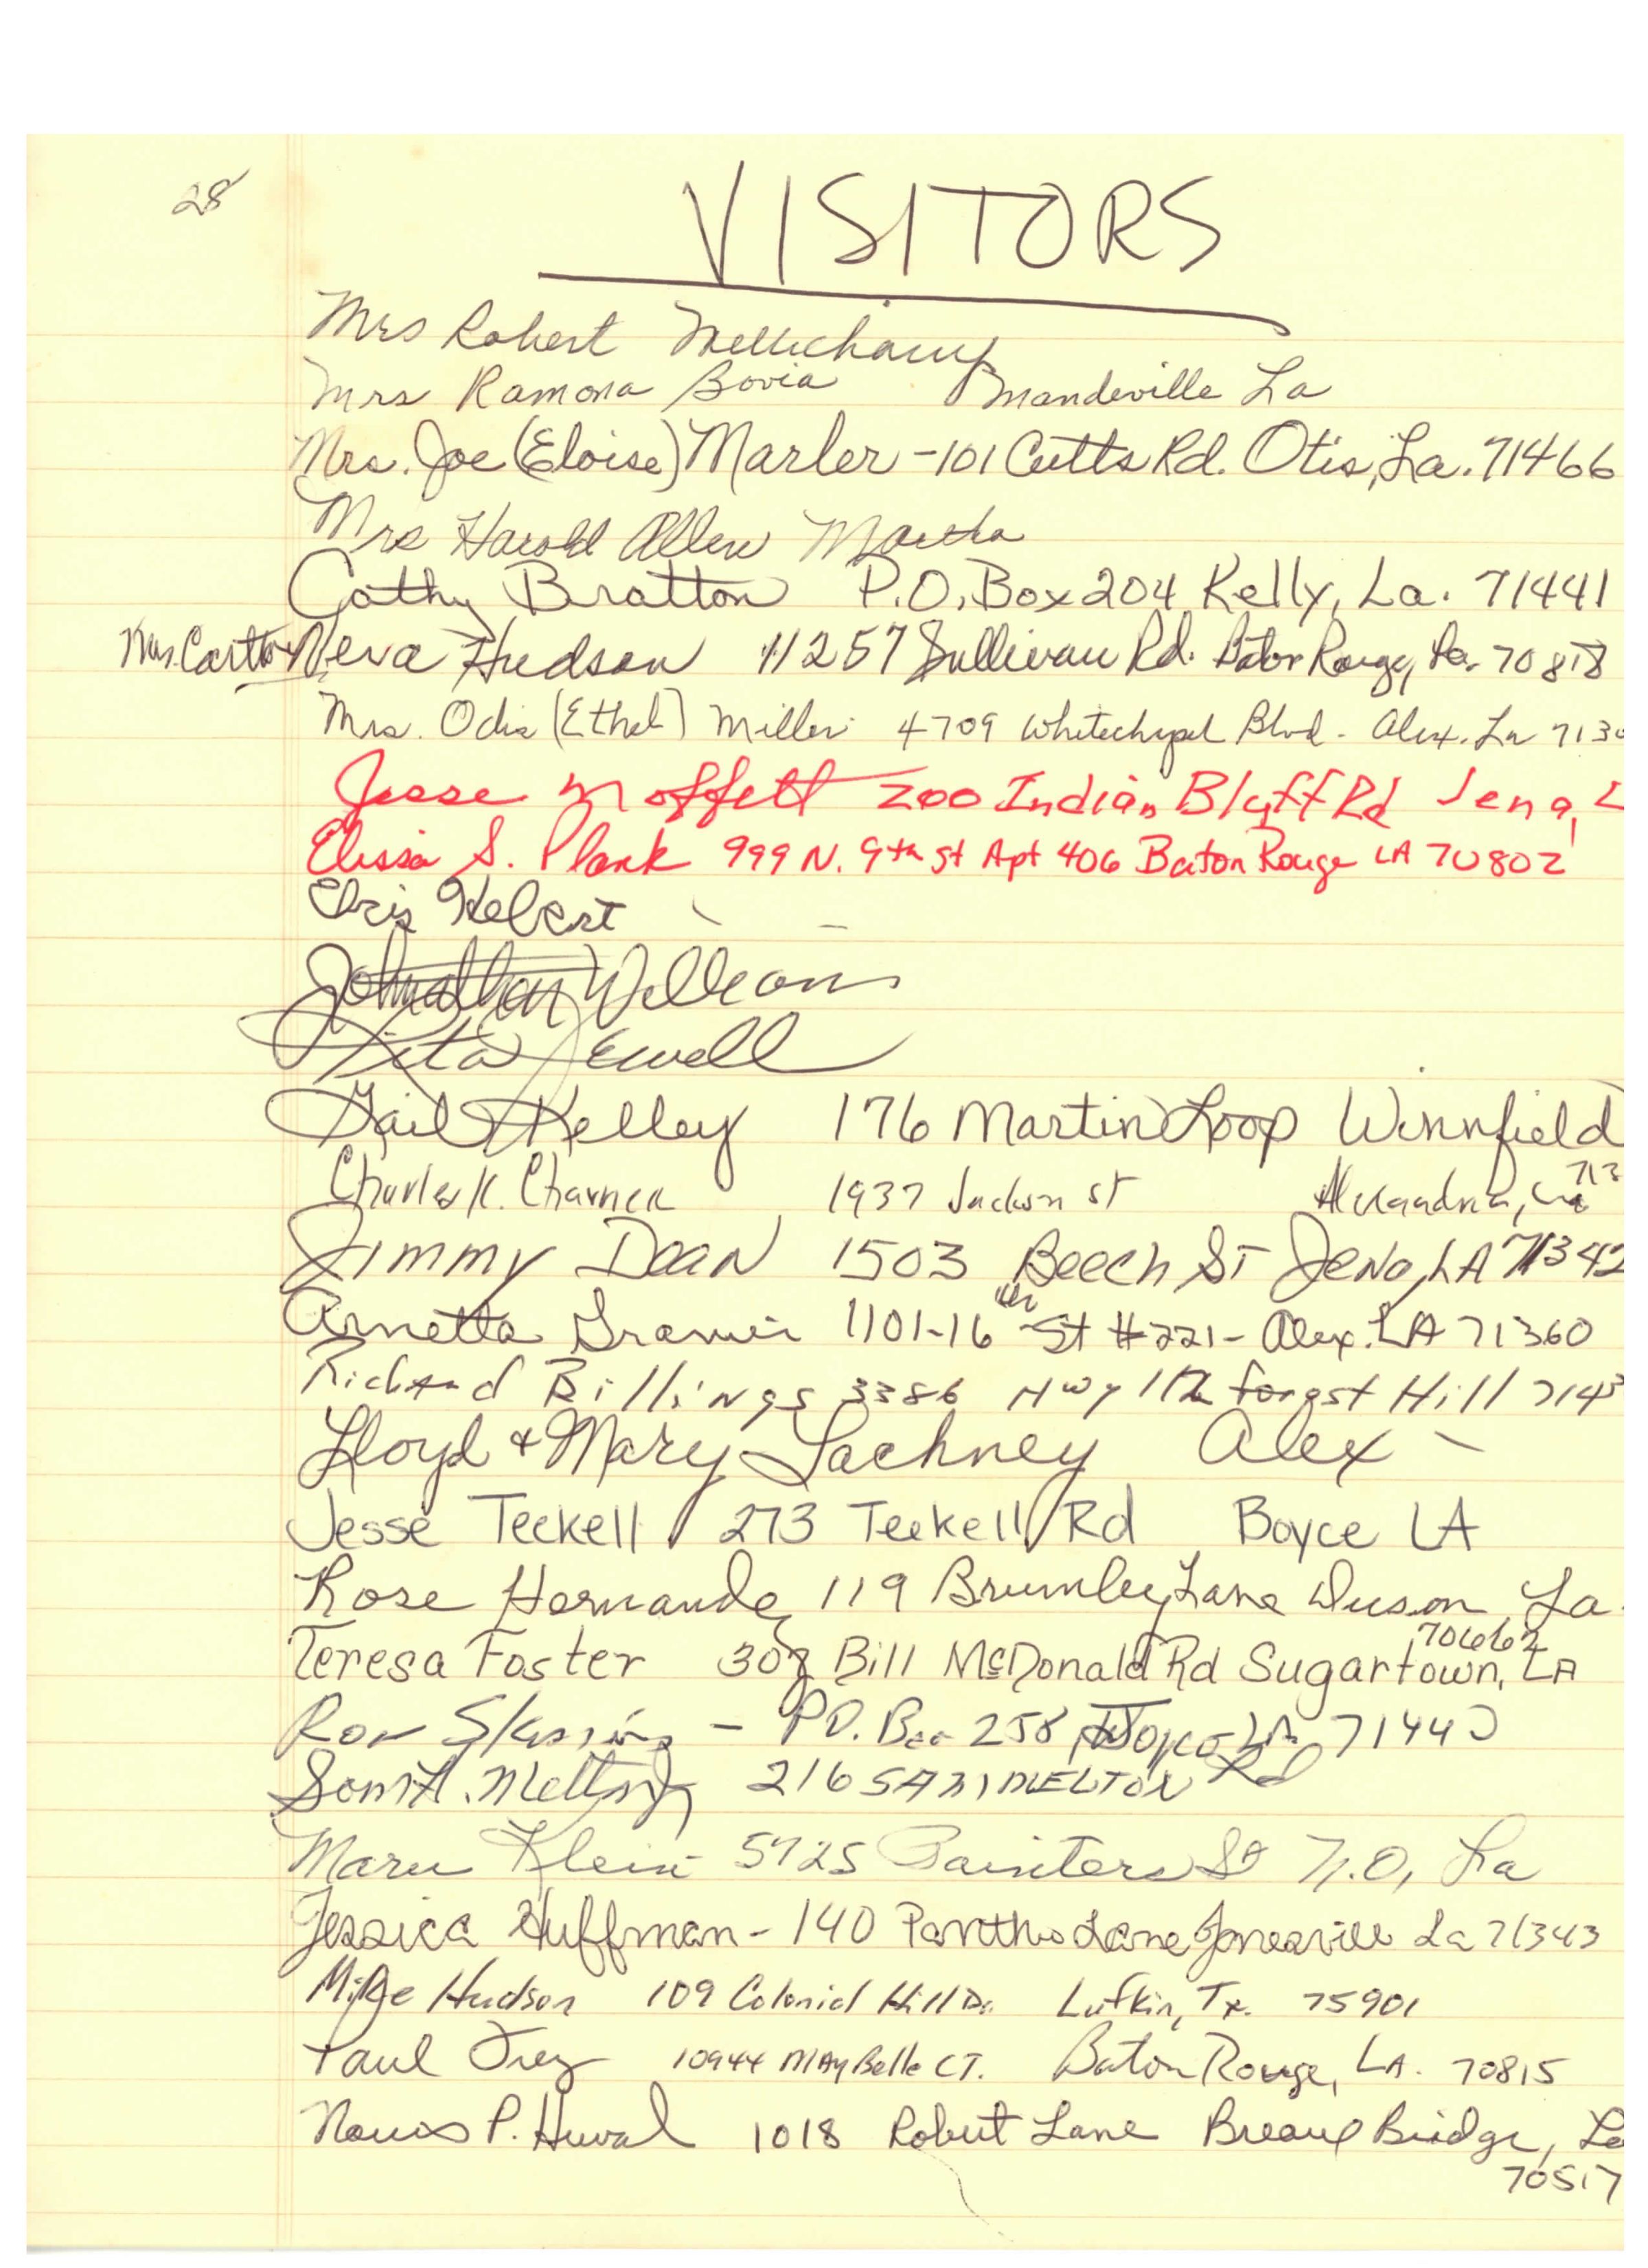 28
VISITORS
Mrs Robert Mellichamp
Mrs Ramona Bovia Mandeville La
Mrs. Joe (Eloise) Marler - 101 Cutts Rd. Otis, La. 71466
Mrs Harold Allen Martha
Cathy Bratton P.O. Box 204 Kelly, La. 71441
Neva Hudson 11257 Sullivan Rd. Baton Rouge, La. 70818
Mrs. Odis (Ethel) Miller 4709 Whitechapel Blvd. Alex. La 713
Jesse Moffett 200 Indian Bluff Rd Jena, L
Elissa S. Plank 999 N. 9th st Apt 406 Baton Rouge LA 70802
Chris Hebert
Johnathan Williams
Rita Jewell
Gail Kelley 176 Martin Loop Winnfield
Charles K. 1937 Jackson st Alexandria, La 713
Jimmy Dean 1503 Beech ST Jena, LA 71342
Arnetta 1101-16th St #221- Alex. LA 71360
Richard Billings 3386 Hwy 112 Forest Hill 7143
Lloyd & Mary Lachney Alex -
Jesse Teekell 273 Teekell Rd Boyce LA
Rose Hernandez 119 Brumley Lane Duson, La.
Teresa Foster 308 Bill McDonald Rd Sugartown, LA 70662
Ron - P.O. Box 258
216 SAM MELTON Rd
Klein 5725 Painters St N.O, La
Jessica Huffman - 140 Lane Jonesville La 71343
Mike Hudson 109 Colonial Hill Dr. Lufkin, Tx. 75901
Paul 10944 MAyBelle CT. Baton Rouge, LA. 70815
P. Huval 1018 Robert Lane Breaux Bridge, La 70517